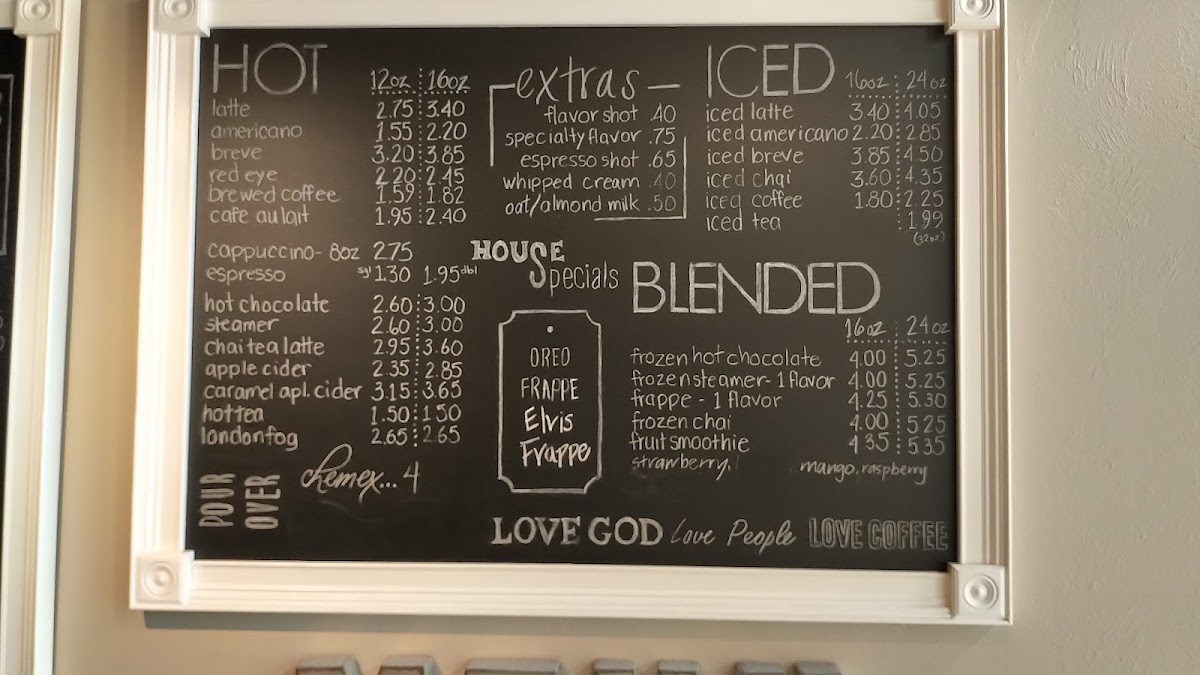 HOT 12oz 16oz
latte 2.75 3.40
americano 1.55 2.20
breve 3.20 3.85
red eye 2.20 2.45
brewed coffee 1.57 1.82
cafe au lait 1.95 2.40
cappuccino- 8oz 2.75
espresso sgl 1.30 1.95 dbl
hot chocolate 2.60 3.00
steamer 2.60 3.00
chai tea latte 2.95 3.60
apple cider 2.35 2.85
caramel apl. cider 3.15 3.65
hot tea 1.50 1.50
london fog 2.65 2.65
POUR
OVER
chemex... 4
extras
flavor shot .40
specialty flavor .75
espresso shot .65
whipped cream .40
oat/almond milk .50
HOUSE
Specials
OREO
FRAPPE
Elvis
Frappe
ICED 16oz 24oz
iced latte 3.40 4.05
iced americano 2.20 2.85
iced breve 3.85 4.50
iced chai 3.60 4.35
iced coffee 1.80 2.25
iced tea 1.99
(32oz)
BLENDED
16oz 24oz
frozen hot chocolate 4.00 5.25
frozen steamer- 1 flavor 4.00 5.25
frappe - 1 flavor 4.25 5.30
frozen chai 4.00 5.25
fruit smoothie 4.35 5.35
strawberry, mango, raspberry
LOVE GOD Love People LOVE COFFEE